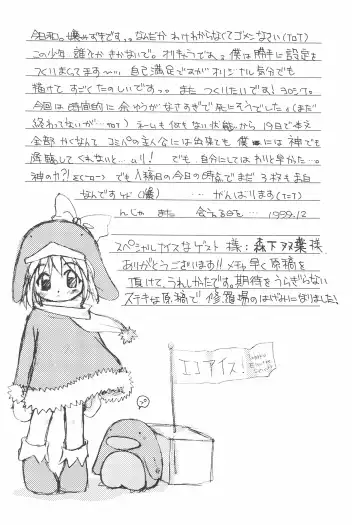 この少年 誰も きかないで。オリキャラです。僕は勝手に設定を
つくりまくってます〜 自己満足ですがオリジナル気分でも
描けて すごくたのしいです。。また つくりたいです!
今回は時間的に余ゆうがなさすぎで死にそうでした。(まだ
終わってないが… ネームも何もない状態から 19日で本文
全部かくなんて コミパの主人公には出来ても 僕には神でも
降臨してくれないと…ムリ! でも、自分にしてはわりと早かった…。
でも 入稿日の今日の時点でまだ 3枚も真白
なんですけど(爆) …… がんばります(T-T)
んじゃ また 会う日を… 1999.12
スペシャルアイスなゲスト様:森下双葉様
ありがとうございます!!メチャ早く原稿を
頂けて、うれしかたです。期待をうらぎらない
ステキな原稿で 修羅場のはげみになりました!
エコアイス!